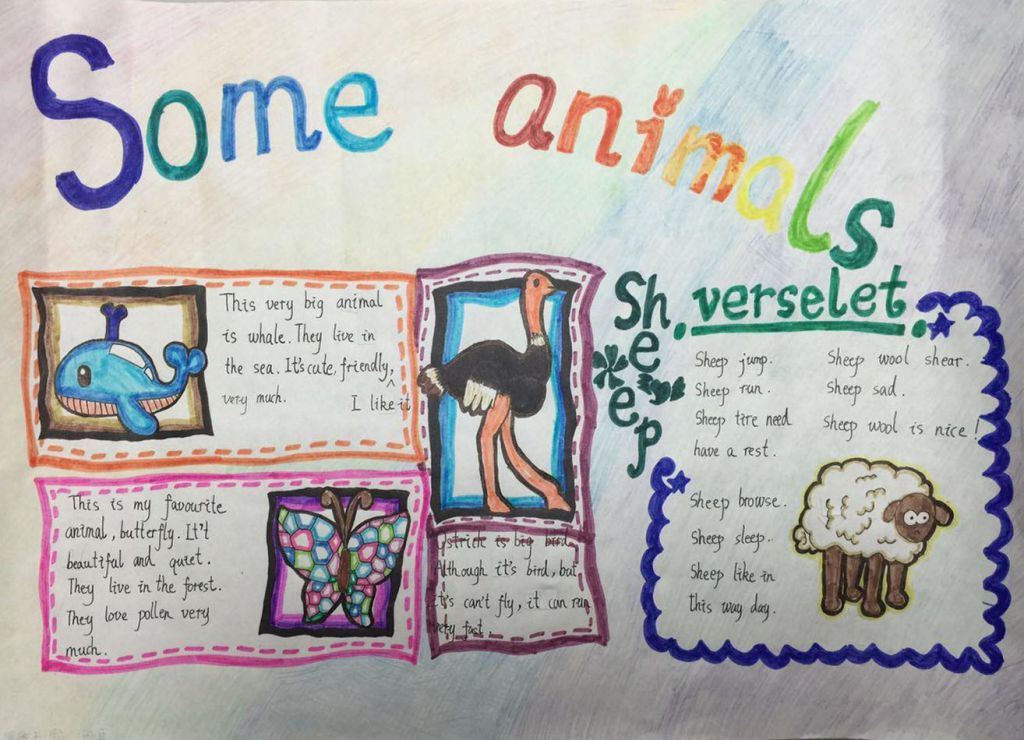 Some animals
This very big animal
is whale. They live in
the sea. It's cute, friendly,
very much. ^ I like it
This is my favourite
animal, butterfly. It't
beautiful and quiet.
They live in the forest.
They love pollen very
much.
Ostrick is big bird.
Although it's bird, but
it's can't fly, it can run
very fast.
Sheep verselet.
Sheep jump.
Sheep run.
Sheep tire need
have a rest.
Sheep browse.
Sheep sleep.
Sheep like in
this way day.
Sheep wool shear.
Sheep sad.
Sheep wool is nice!